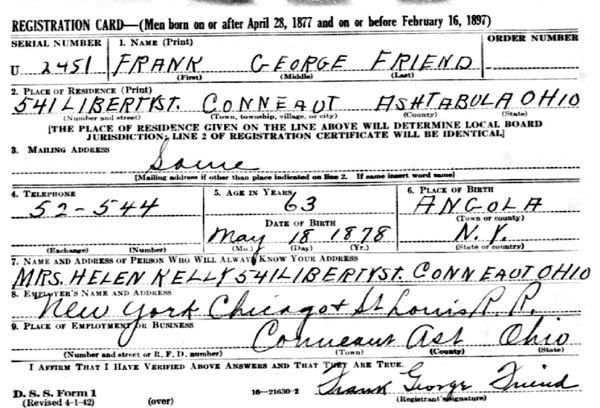 REGISTRATION CARD—(Men born on or after April 28, 1877 and on or before February 16, 1897)
SERIAL NUMBER 1. NAME (Print) ORDER NUMBER
U 2451 FRANK GEORGE FRIEND
(First) (Middle) (Last)
2. PLACE OF RESIDENCE (Print)
541 LIBERTY ST. CONNEAUT ASHTABULA OHIO
(Number and street) (Town, township, village, or city) (County) (State)
[THE PLACE OF RESIDENCE GIVEN ON THE LINE ABOVE WILL DETERMINE LOCAL BOARD
JURISDICTION; LINE 2 OF REGISTRATION CERTIFICATE WILL BE IDENTICAL]
3. MAILING ADDRESS
Same
[Mailing address if other than place indicated on line 2. If same insert word same]
4. TELEPHONE 5. AGE IN YEARS 6. PLACE OF BIRTH
52-544 63 ANGOLA
DATE OF BIRTH (Town or county)
May 18 1878 N.Y.
(Exchange) (Number) (Mo.) (Day) (Yr.) (State or country)
7. NAME AND ADDRESS OF PERSON WHO WILL ALWAYS KNOW YOUR ADDRESS
MRS. HELEN KELLY 541 LIBERTY ST. CONNEAUT OHIO
8. EMPLOYER'S NAME AND ADDRESS
New York Chicago & St Louis R.R.
9. PLACE OF EMPLOYMENT OR BUSINESS
Conneaut Ast Ohio
(Number and street or R. F. D. number) (Town) (County) (State)
I AFFIRM THAT I HAVE VERIFIED ABOVE ANSWERS AND THAT THEY ARE TRUE.
D. S. S. Form 1 16—21630-2 Frank George Friend
(Revised 4-1-42) (over) (Registrant's signature)